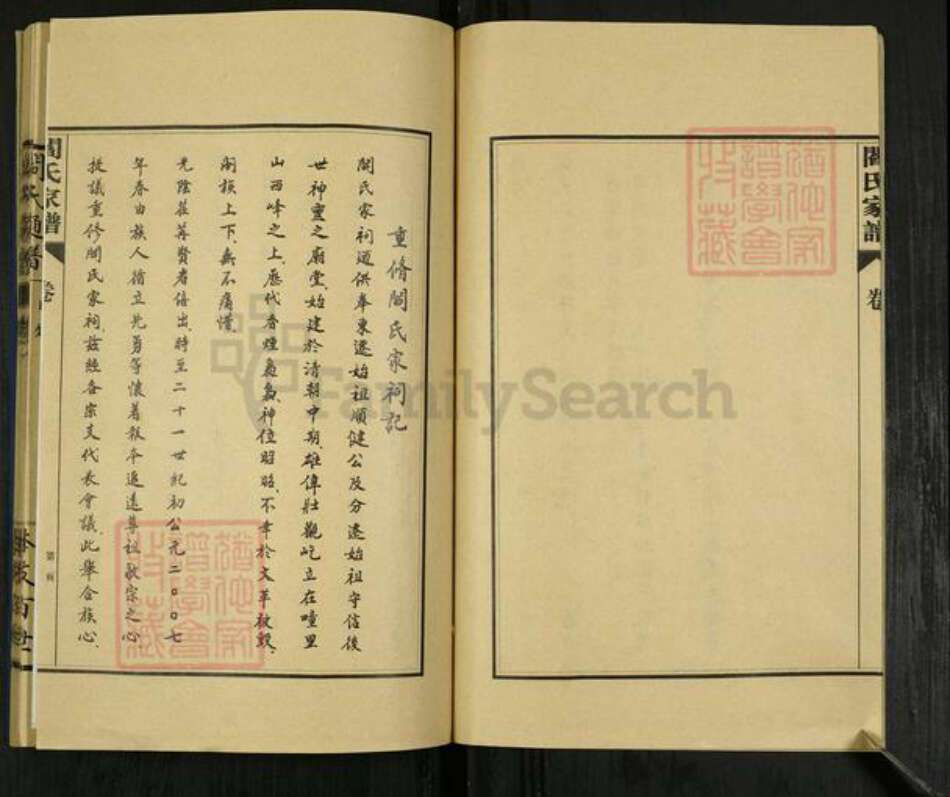 閻氏家譜
卷
重脩閻氏家祠記
閻氏家祠迺供奉東遷始祖順健公及分遷始祖守信後
世神靈之廟堂、始建於清朝中期、雄偉壯觀屹立在疃里
山西峰之上、歷代香煙裊裊、神位昭昭、不幸於文革被毀、
閤族上下、無不痛惜、
光陰荏苒賢者倍出、時至二十一世紀初公元二〇〇七
年春由族人
立先勇等懷着報本追遠尊祖敬宗之心、
提議重修閻氏家祠、茲經各宗支代表會議、此舉合族心、
閻氏家譜
卷
第 頁
閻氏通譜
百世
FamilySearch
譜學會
收藏
譜學會
收藏